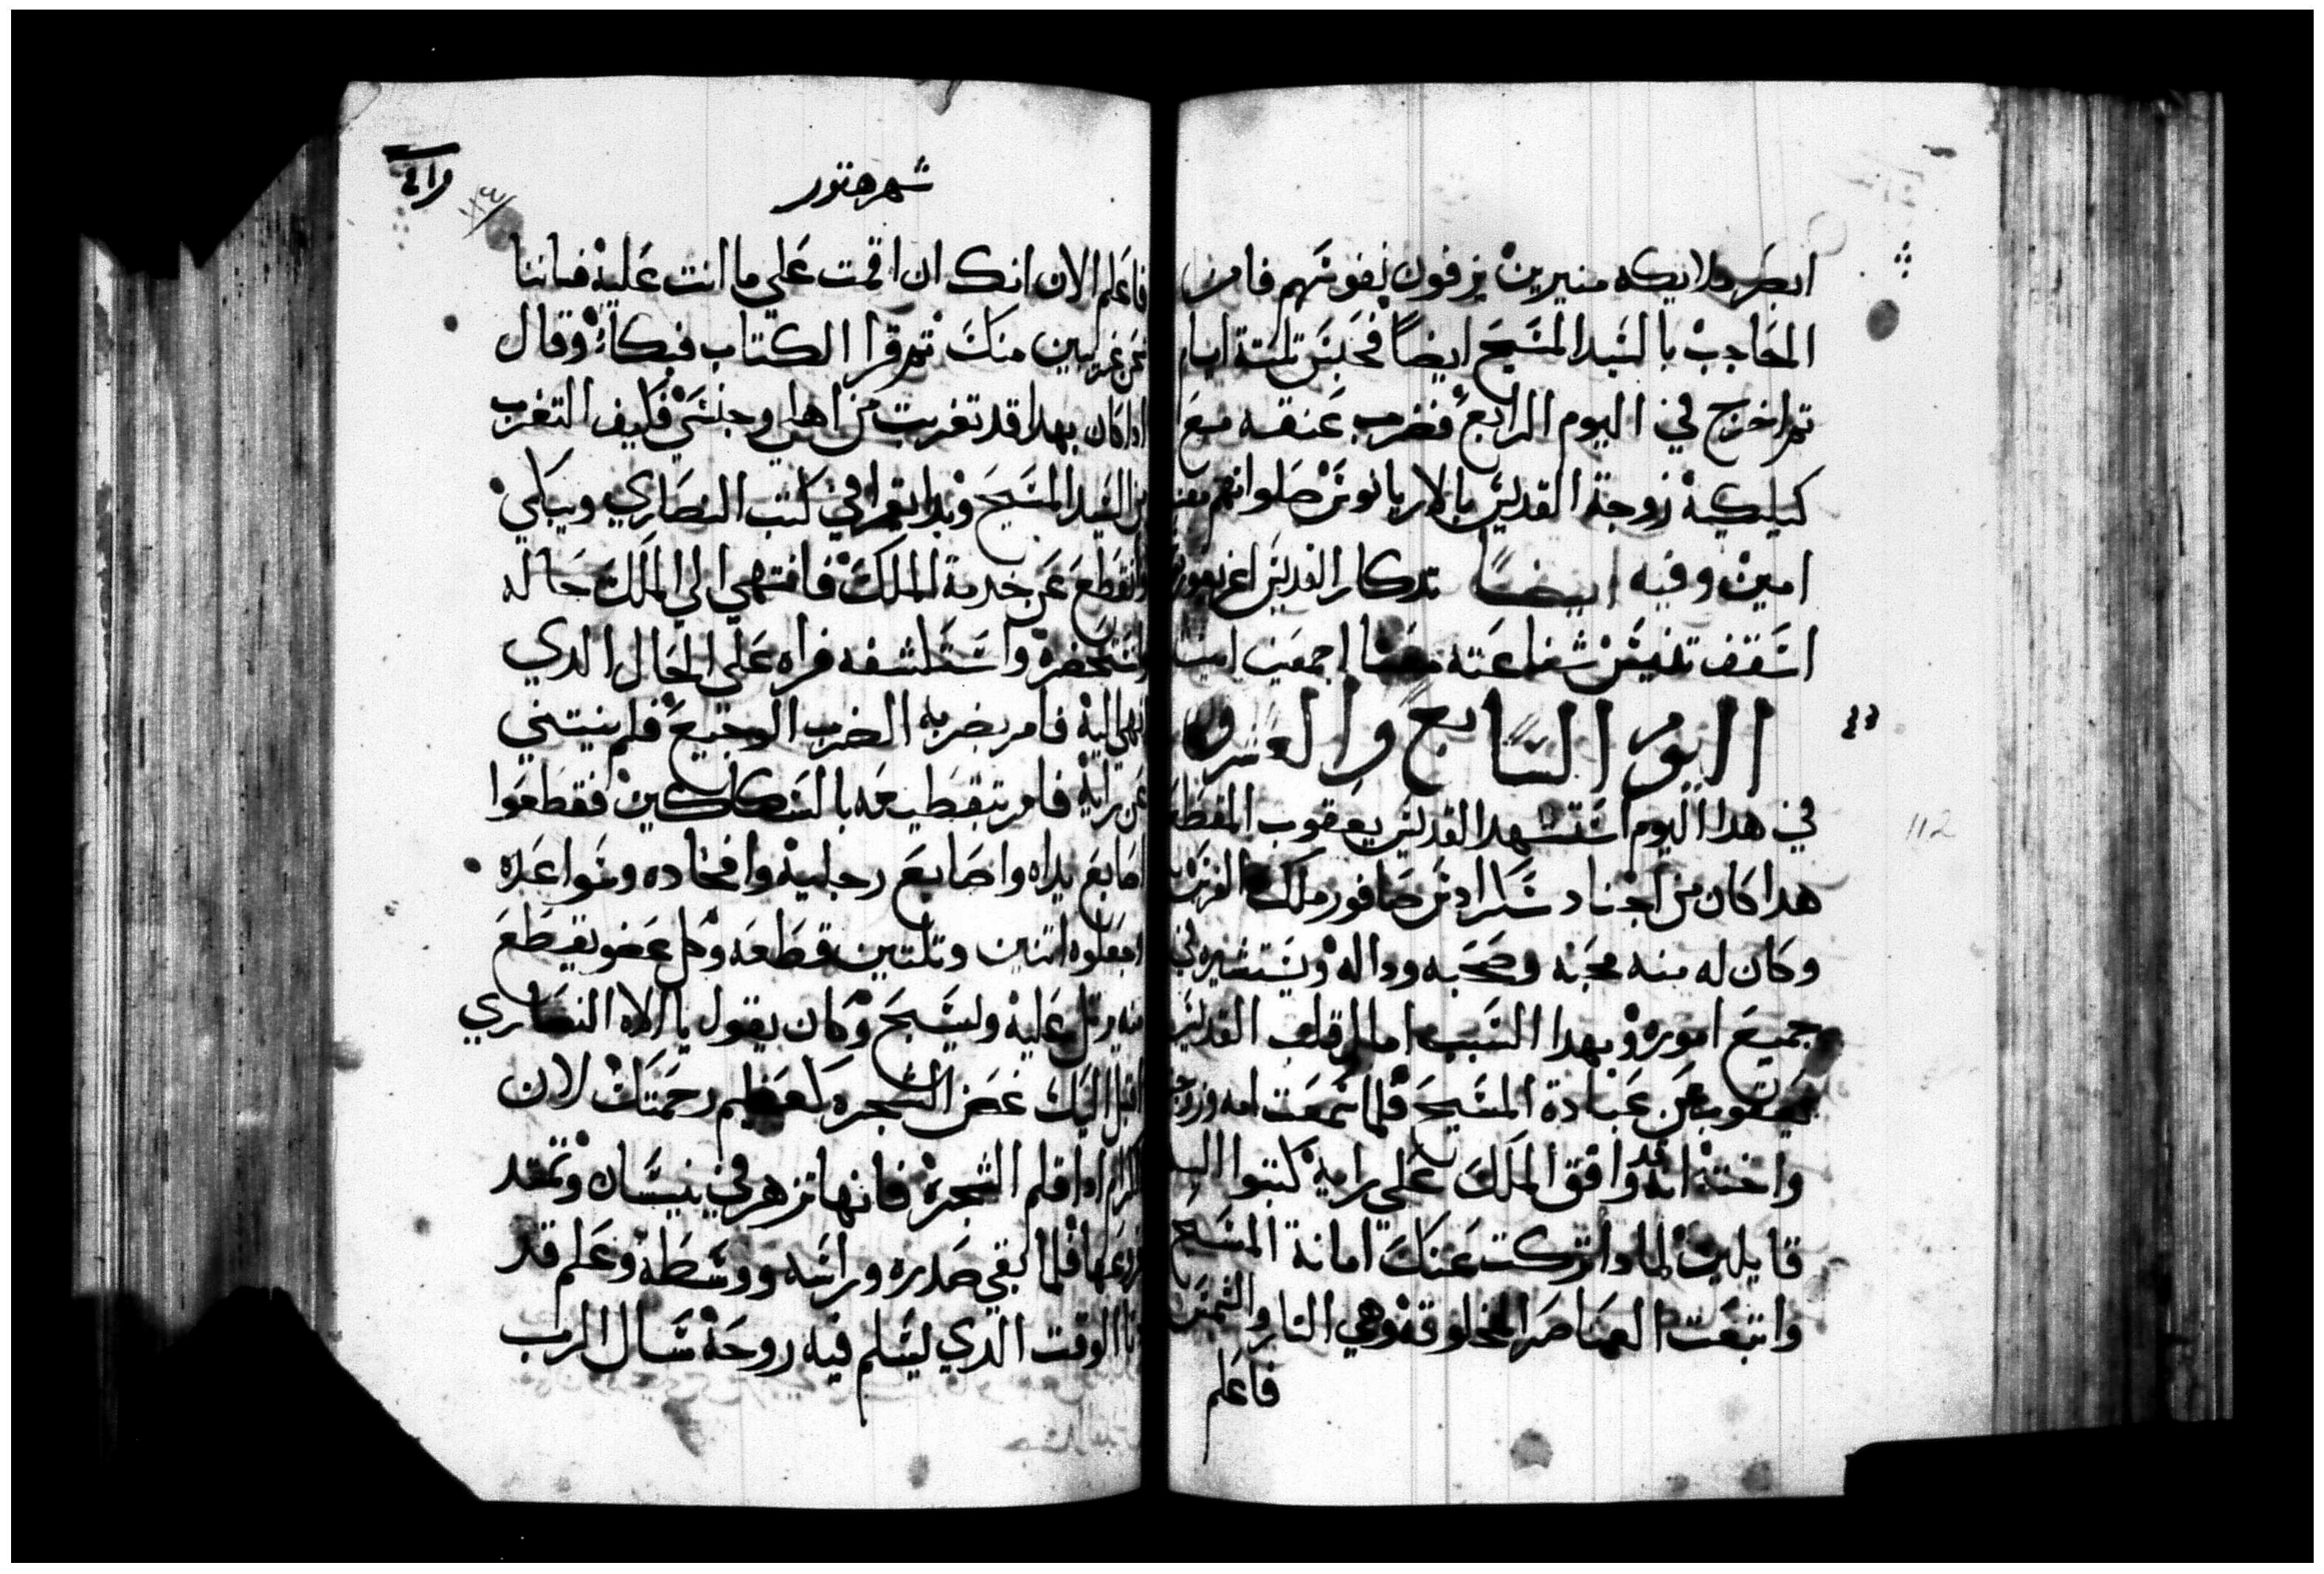 ابصر ملايكه منيرين يزفون نفوسهم فامن
الحاجب بالسيد المسيح ايضاً فحبس تلتة ايام
تم اخرج في اليوم الرابع فضرب عنقه مع
كيليكية زوجة القديس بالاريانوس صلواتهم
امين وفيه ايضاً تدكار القديس اغريغوريوس
اسقف شفاعته معنا اجمعين امين
اليوم السابع والعشرون
في هدا اليوم استشهد القديس يعقوب المقطع
هدا كان من اجناد صافور ملك الفرس
وكان له منه محبه وصحبه وداله ويستشيره في
جميع اموره وبهدا السبب امال قلب القديس
يعقوب عن عبادة المسيح فلما سمعت امه وزوجته
واخته انه قد وافق الملك على رايه كتبوا اليه
قايلين لمادا تركت عنك امانة المسيح
واتبعت العناصر المخلوقه وهي النار والشمس
فاعلم
شهر هتور
١١٣
112
فاعلم الان انك ان اقمت على ما انت عليه فاننا
نحن غريبين منك تم قرا الكتاب فبكا وقال
ادا كان بهدا قد تغربت من اهلي وجنسي فكيف التغرب
من السيد المسيح وبدا يقرا في كتب النصاري ويبكي
وانقطع عن خدمة الملك فانتهي الي الملك حاله
واستحضره واستكشفه فراه على الحال الدي
انهي اليه فامر بضربه الضرب الوجيع فلم ينتني
عن رايه فامر بتقطيعه بالسكاكين فقطعوا
اصابع يداه واصابع رجليه وافخاده وسواعده
اجعلوه اتنين وتلتين قطعه وكل عضو يقطع
منه يرتل عليه وليسبح وكان يقول يا الاه النصاري
اقبل اليك غصن الشجره كعظيم رحمتك لان
الكرام ادا قلم الشجره فانها تزهر في نيسان وتمتد
فروعها فلما بقي صدره وراسه ووسطه وعلم قد
دنا الوقت الدي يسلم فيه روحه سال الرب